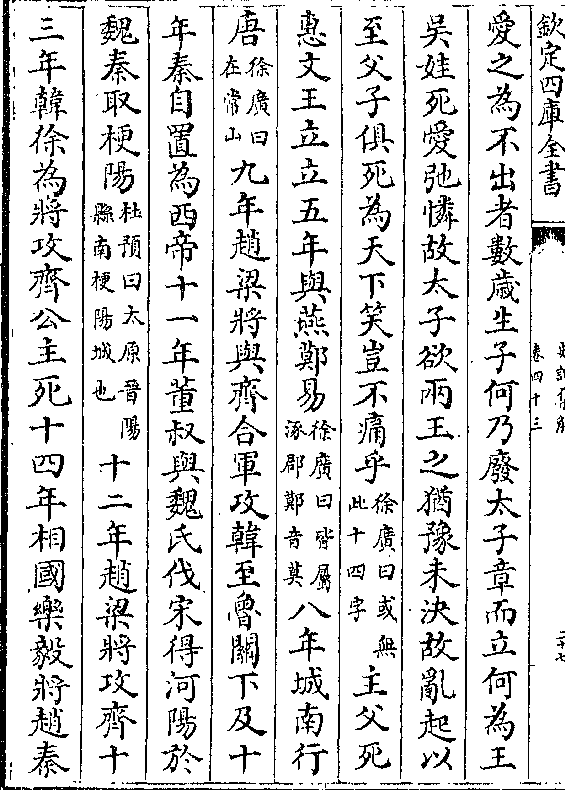 欽定四庫全書
卷四十三
二十七
愛之為不出者數歲生子何乃廢太子章而立何為王
吳娃死愛弛憐故太子欲兩王之猶豫未決故亂起以
至父子俱死為天下笑豈不痛乎徐廣曰或無此十四字主父死
惠文王立立五年與燕鄚易徐廣曰皆屬涿郡鄚音莫八年城南行
唐徐廣曰在常山九年趙梁將與齊合軍攻韓至魯關下及十
年秦自置為西帝十一年董叔與魏氏伐宋得河陽於
魏秦取梗陽杜預曰太原晉陽縣南梗陽城也十二年趙梁將攻齊十
三年韓徐為將攻齊公主死十四年相國樂毅將趙秦